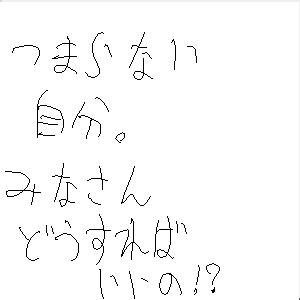 つまらない
自分。
みなさん
どうすれば
いいの!?